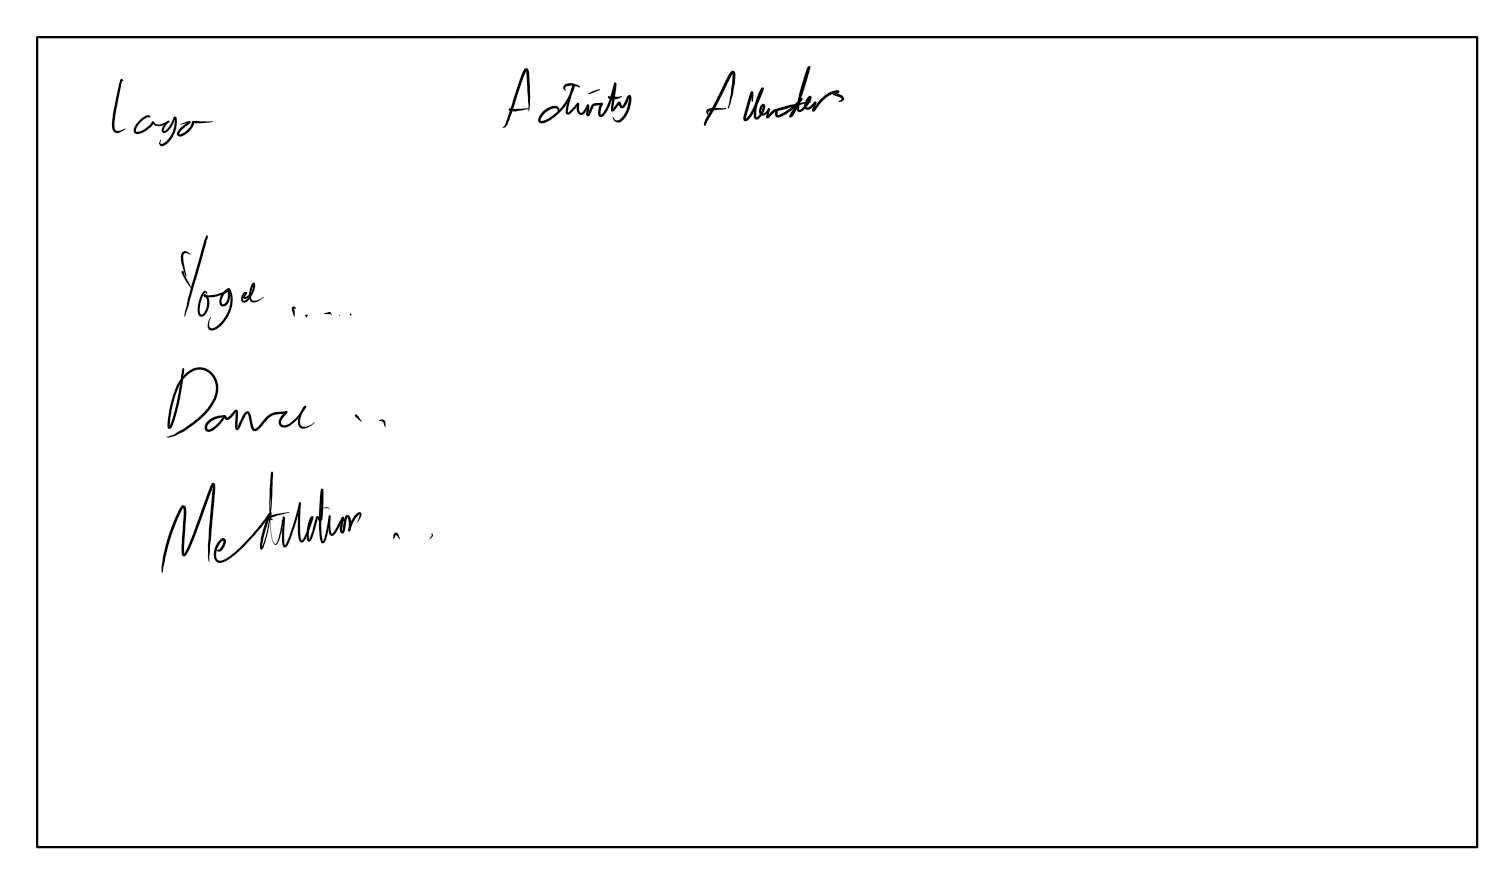 Logo Activity Attenders
Yoga .....
Dance ..
Meditation ..